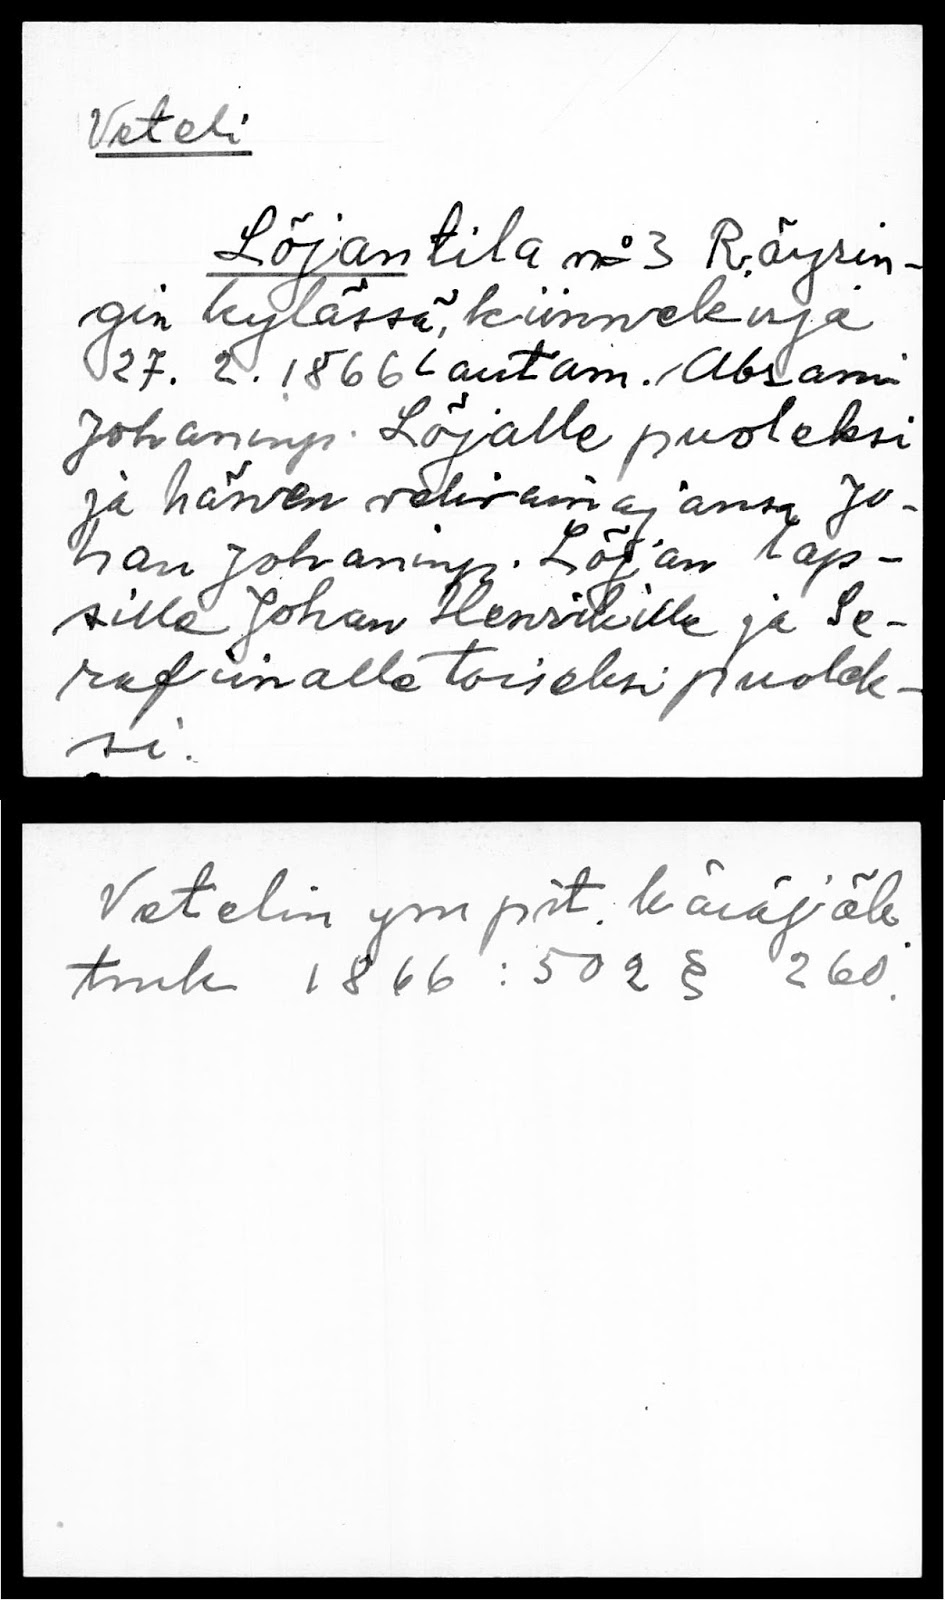 Veteli
Löjan tila no 3 Räyrin-
gin kylässä, kiinnekirja
27. 2. 1866 Lautam. Abrami
Johaninp. Löjalle puoleksi
ja hänen veli vainajansa Jo-
han Johaninp. Löjan lap-
sille Johan Henrikille ja Se-
rafiinalle toiseksi puolek-
si.
Vetelin ym pit. käräjäk.
tuok 1866 : 502 § 260.